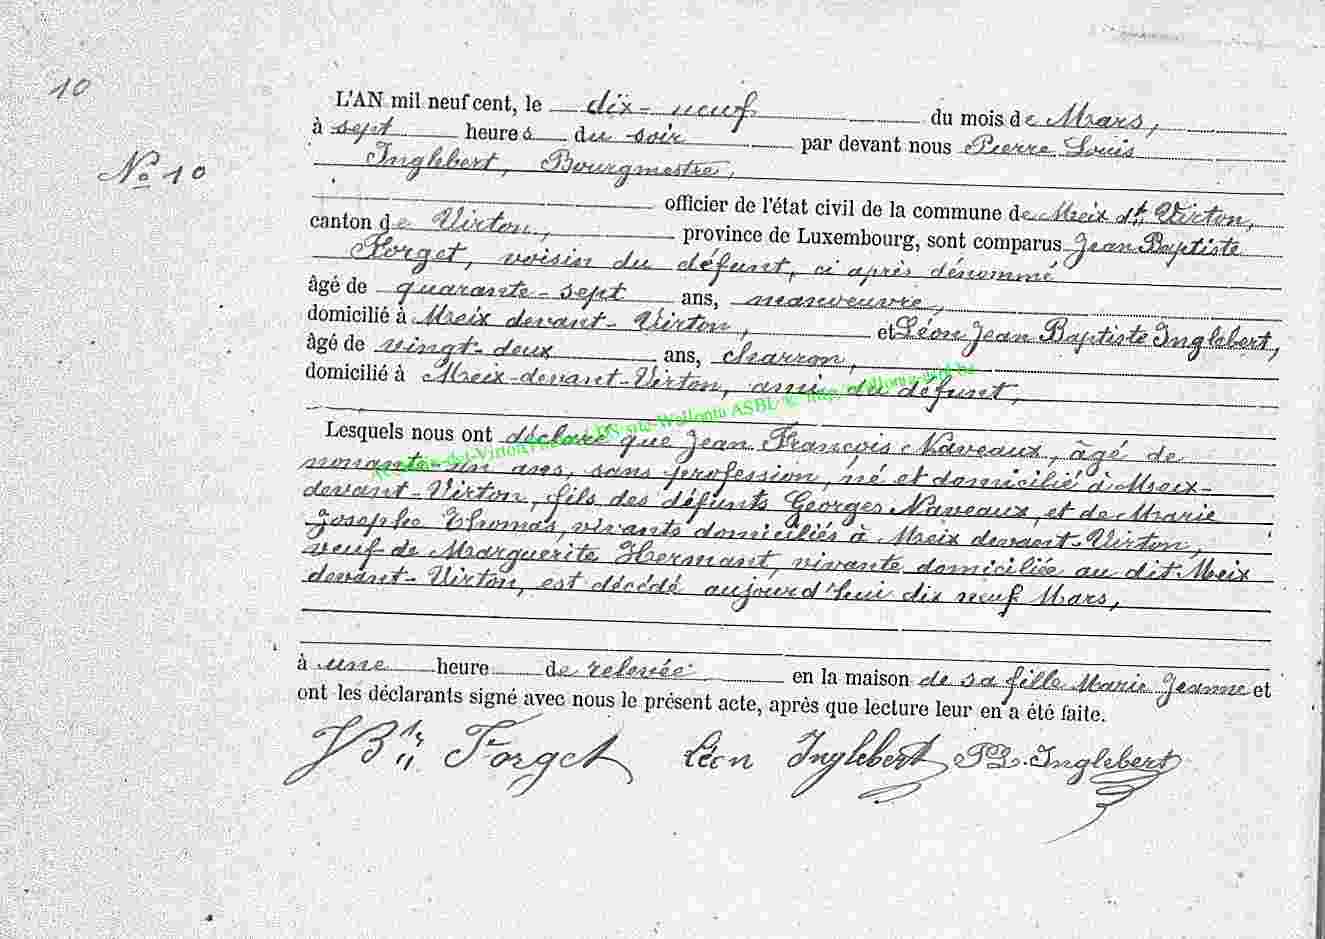 10
L'AN mil neuf cent, le dix-neuf du mois de Mars,
N° 10
à sept heures du soir par devant nous Pierre Louis
Inglebert, Bourgmestre,
officier de l'état civil de la commune de Meix dt Virton,
canton de Virton, province de Luxembourg, sont comparus Jean Baptiste
Forget, voisin du défunt, ci après dénommé
âgé de quarante-sept ans, manoeuvre,
domicilié à Meix devant-Virton, et Léon Jean Baptiste Inglebert,
âgé de vingt-deux ans, charron,
domicilié à Meix-devant-Virton, ami du défunt,
Lesquels nous ont déclaré que Jean François Naveaux, âgé de
nonante-un ans, sans profession, né et domicilié à Meix-
devant-Virton, fils des défunts Georges Naveaux, et de Marie
Josephe Thomas, vivants domiciliés à Meix devant-Virton,
veuf de Marguerite Hermant, vivante domiciliée au dit Meix
devant-Virton, est décédé aujourd'hui dix neuf Mars,
à une heure de relevée en la maison de sa fille Marie Jeanne et
ont les déclarants signé avec nous le présent acte, après que lecture leur en a été faite.
JBte Forget Léon Inglebert PL. Inglebert